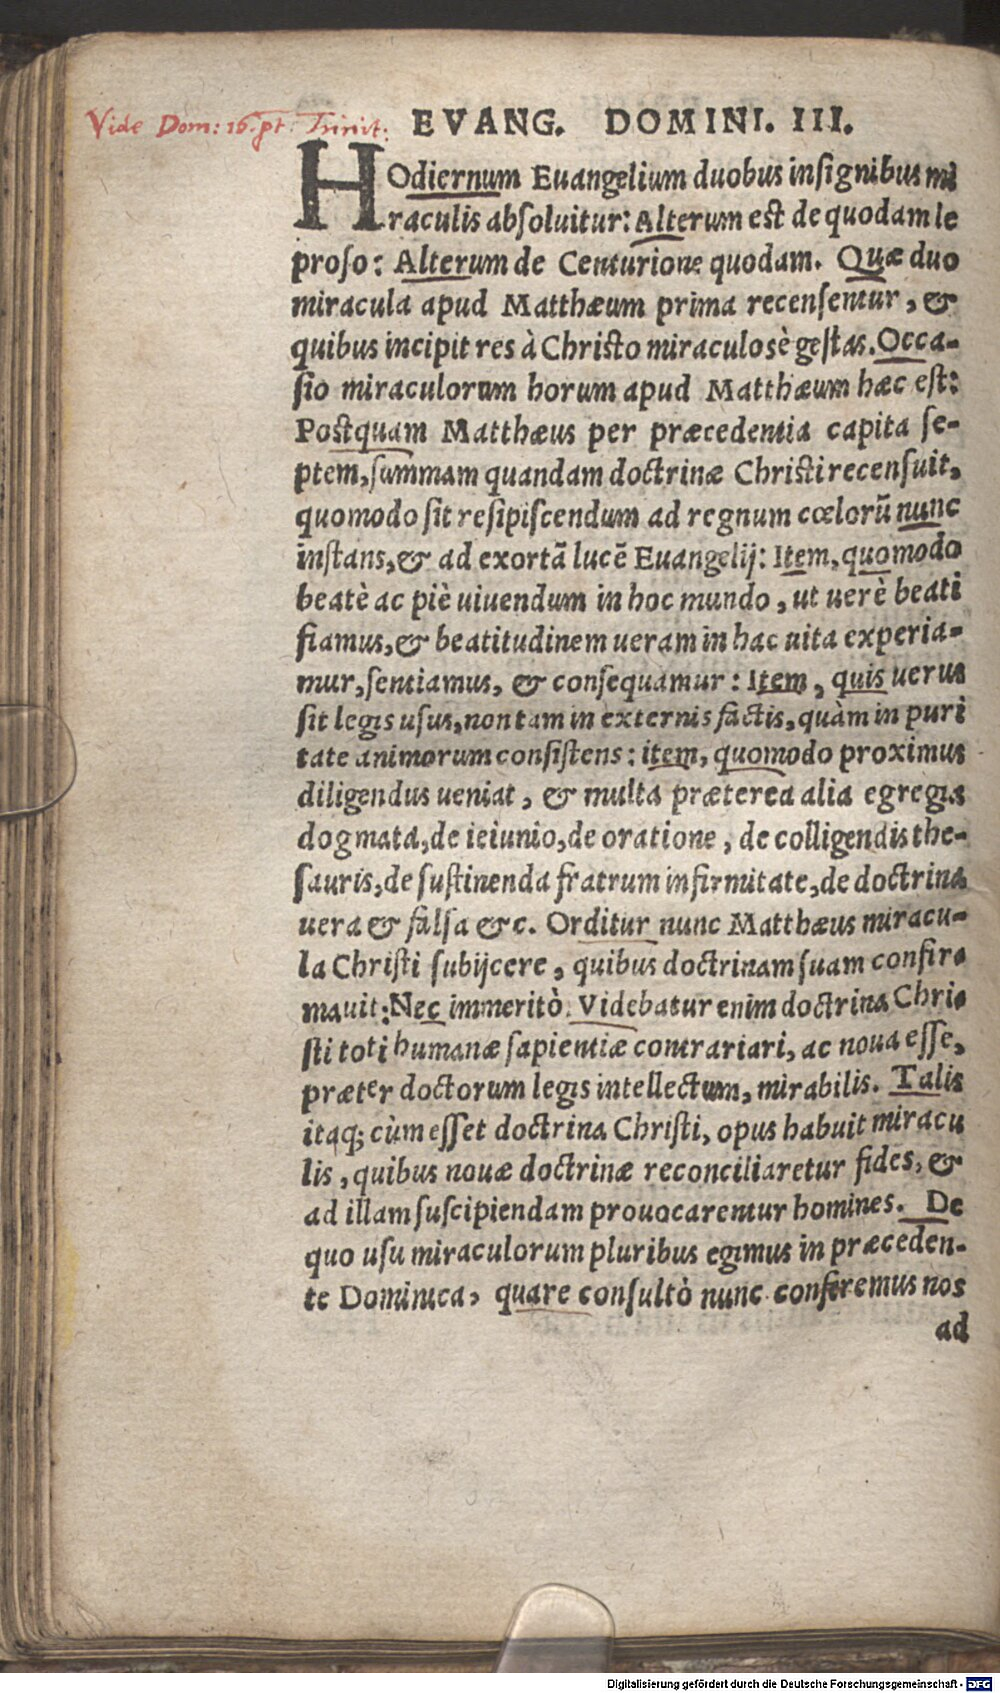 Vide Dom: 16. pt. Trinit:
EVANG. DOMINI. III.
HOdiernum Euangelium duobus insignibus mi
raculis absoluitur: Alterum est de quodam le
proso: Alterum de Centurione quodam. Quæ duo
miracula apud Matthæum prima recensentur, &
quibus incipit res à Christo miraculosè gestas. Occa-
sio miraculorum horum apud Matthæum hæc est:
Postquam Matthæus per præcedentia capita se-
ptem, summam quandam doctrinæ Christi recensuit,
quomodo sit resipiscendum ad regnum cœlorũ nunc
instans, & ad exortã lucẽ Euangelij: Item, quomodo
beatè ac piè uiuendum in hoc mundo, ut uerè beati
fiamus, & beatitudinem ueram in hac uita experia-
mur, sentiamus, & consequamur: Item, quis uerus
sit legis usus, non tam in externis factis, quàm in puri
tate animorum consistens: item, quomodo proximus
diligendus ueniat, & multa præterea alia egregia
dogmata, de ieiunio, de oratione, de colligendis the-
sauris, de sustinenda fratrum infirmitate, de doctrina
uera & falsa &c. Orditur nunc Matthæus miracu-
la Christi subijcere, quibus doctrinam suam confir-
mauit: Nec immeritò. Videbatur enim doctrina Chri-
sti toti humanæ sapientiæ contrariari, ac noua esse,
præter doctorum legis intellectum, mirabilis. Talis
itaq; cùm esset doctrina Christi, opus habuit miracu
lis, quibus nouæ doctrinæ reconciliaretur fides, &
ad illam suscipiendam prouocarentur homines. De
quo usu miraculorum pluribus egimus in præceden-
te Dominica, quare consultò nunc conferemus nos
ad
Digitalisierung gefördert durch die Deutsche Forschungsgemeinschaft - DFG